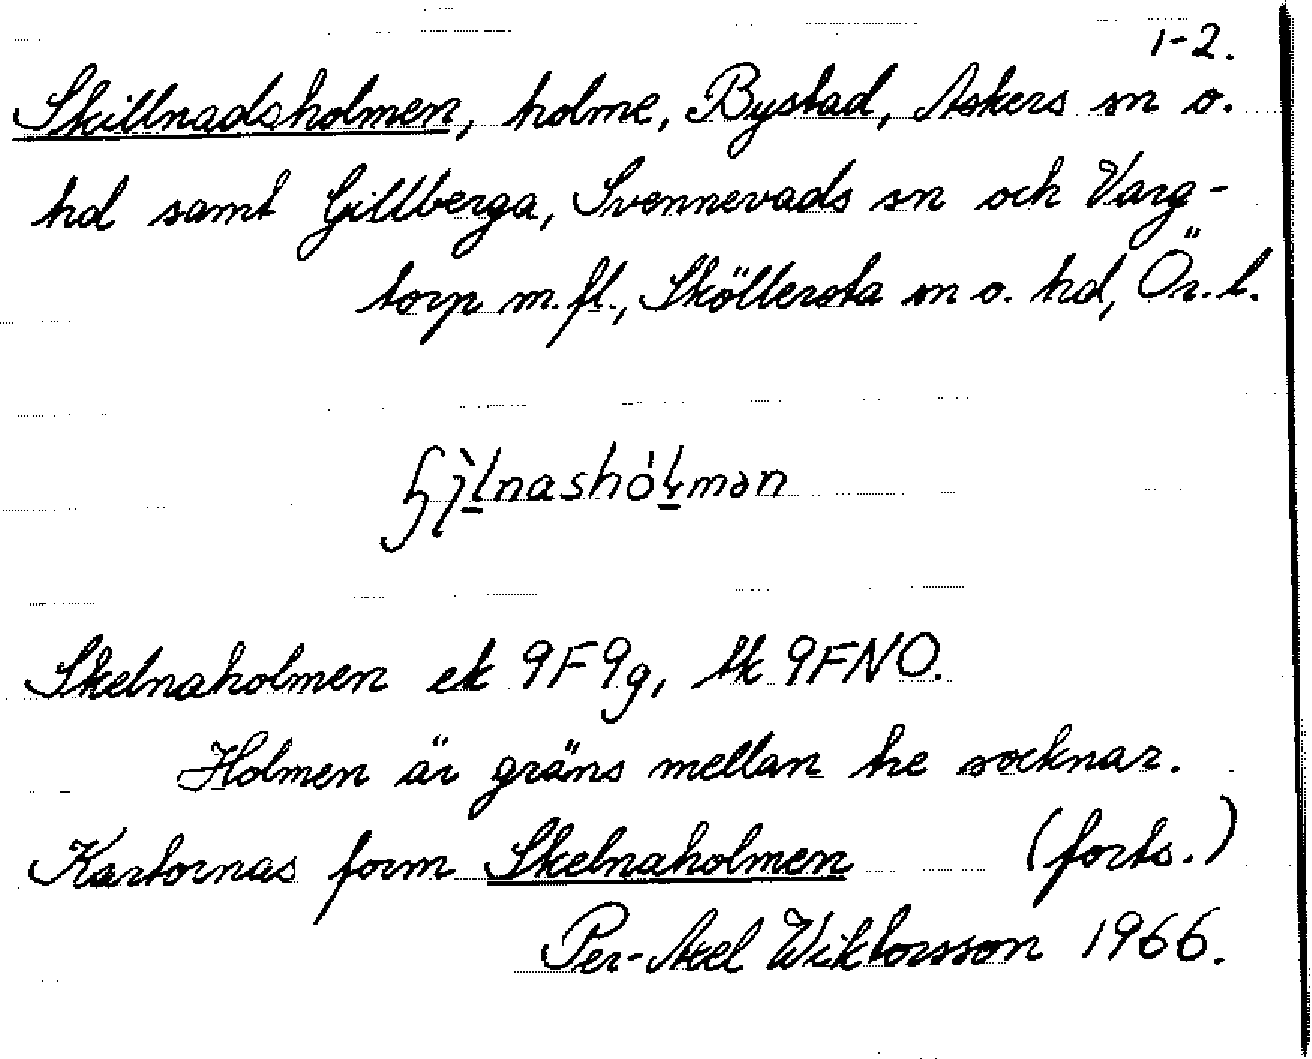 1-2.
Skillnadsholmen, holme, Bystad, Askers sn o.
hd samt Gillberga, Svennevads sn och Varg-
torp m.fl., Sköllersta sn o. hd, Ör. l.
Skelnaholmen ek 9F9g, tk 9FNO.
Holmen är gräns mellan tre socknar.
Kartornas form Skelnaholmen (forts.)
Per-Axel Wiktorsson 1966.